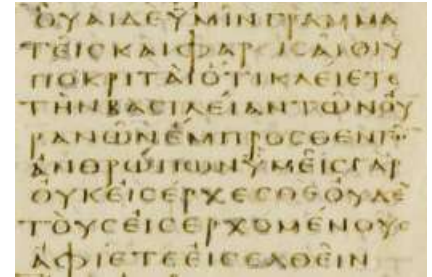 ΟΥΑΙΔΕΥΜΙΝΓΡΑΜΜΑ
ΤΕΙϹΚΑΙΦΑΡΙϹΑΙΟΙΥ
ΠΟΚΡΙΤΑΙΟΤΙΚΛΕΙΕΤΕ
ΤΗΝΒΑϹΙΛΕΙΑΝΤΩΝΟΥ
ΡΑΝΩΝΕΜΠΡΟϹΘΕΝΤΩ
ΑΝΘΡΩΠΩΝΥΜΕΙϹΓΑΡ
ΟΥΚΕΙϹΕΡΧΕϹΘΕΟΥΔΕ
ΤΟΥϹΕΙϹΕΡΧΟΜΕΝΟΥϹ
ΑΦΙΕΤΕΕΙϹΕΛΘΕΙΝ